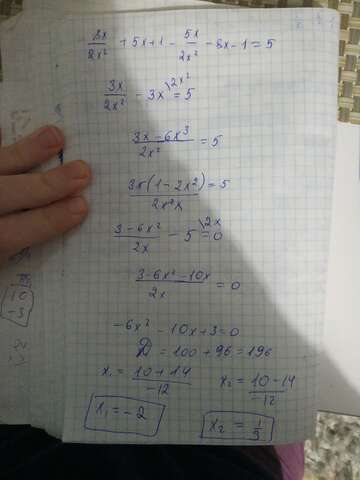 8x/2x² + 5x + 1 - 5x/2x² - 8x - 1 = 5
3x/2x² - 3x \2x² = 5
3x - 6x³/2x² = 5
3x(1 - 2x²)/2x²x = 5
3 - 6x²/2x - 5 \2x = 0
3 - 6x² - 10x/2x = 0
-6x² - 10x + 3 = 0
D = 100 + 96 = 196
x₁ = 10 + 14/-12 x₂ = 10 - 14/-12
x₁ = -2 x₂ = 1/3
10
-3